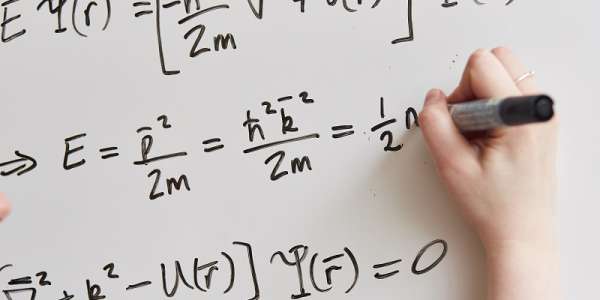 E Ψ(r̄) = [-ħ²/2m ∇² + U(r̄)] Ψ(r̄)
⇒ E = p̄²/2m = ħ²k̄²/2m = 1/2 m
∇̄² + k² - U(r̄)] Ψ(r̄) = 0